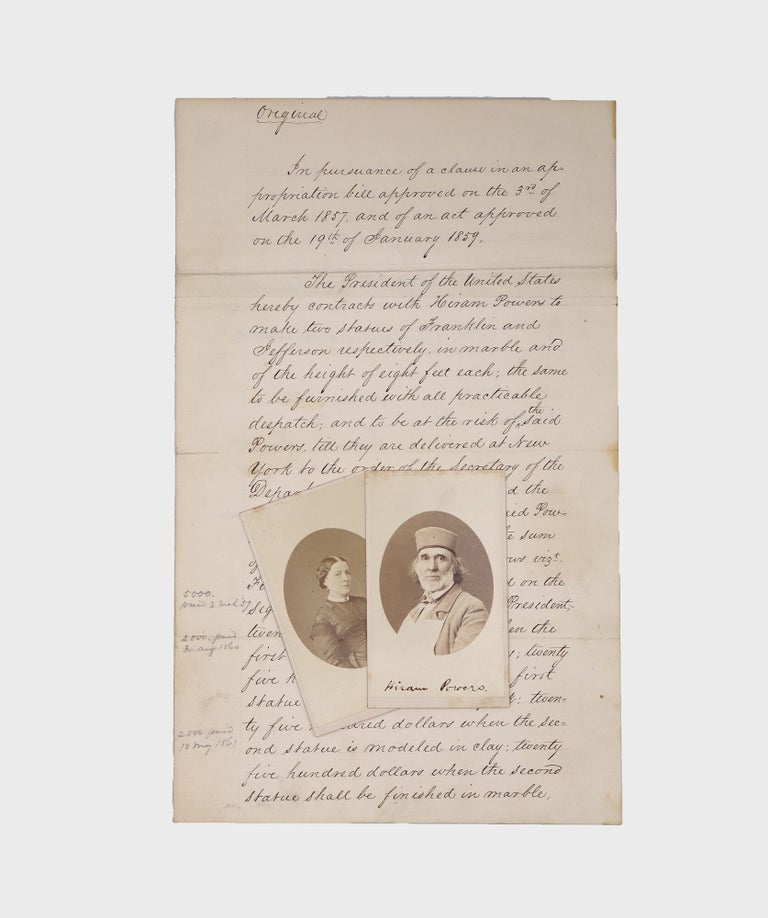 Original
In pursuance of a clause in an ap-
propriation bill approved on the 3rd of
March 1857. and of an act approved
on the 19th of January 1859,
The President of the United States
hereby contracts with Hiram Powers to
make two statues of Franklin and
Jefferson respectively, in marble and
of the height of eight feet each; the same
to be furnished with all practicable
despatch; and to be at the risk of the said
Powers, till they are delivered at New
York to the order of the Secretary of the
Depar d the
id Pow-
sum
of viz:
d on the
Sig President;
twen the
first ; twenty
five h first
statue twen-
ty five dred dollars when the sec-
ond statue is modeled in clay; twenty
five hundred dollars when the second
statue shall be finished in marble,
5000.
paid
2500. paid
30 Aug 1860
2500 paid
18 May 1861
Hiram Powers.